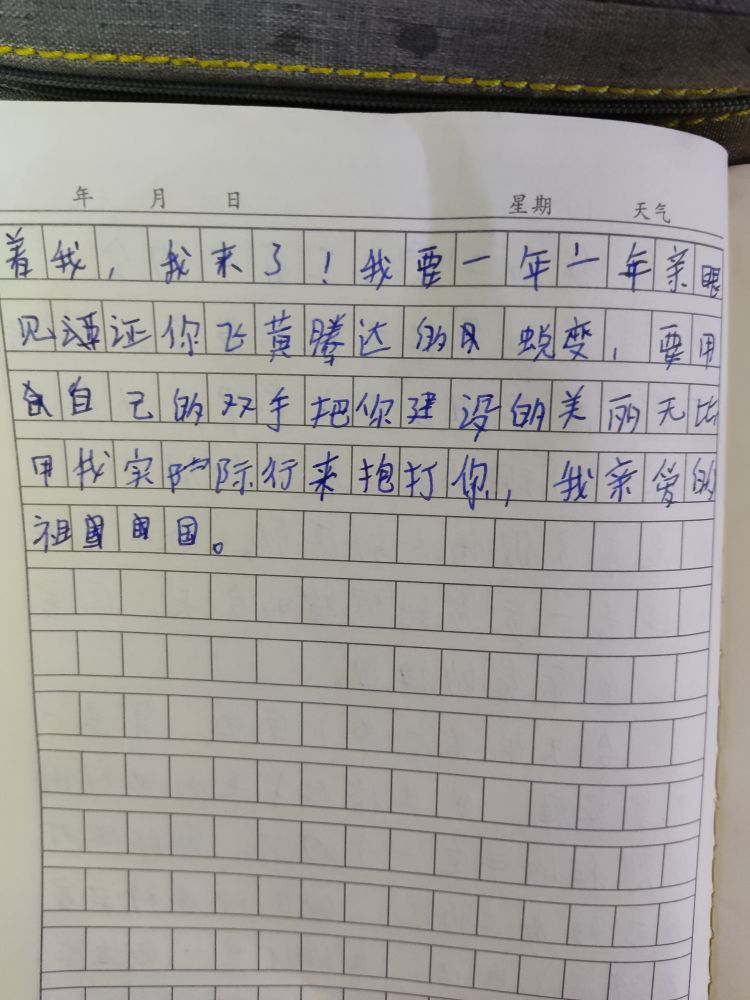 年 月 日 星期 天气
着我，我来了！我要一年一年亲眼
见证你飞黄腾达的蜕变，要用
自己的双手把你建设的美丽无比
用我实际行来抱打你，我亲爱的
祖国。